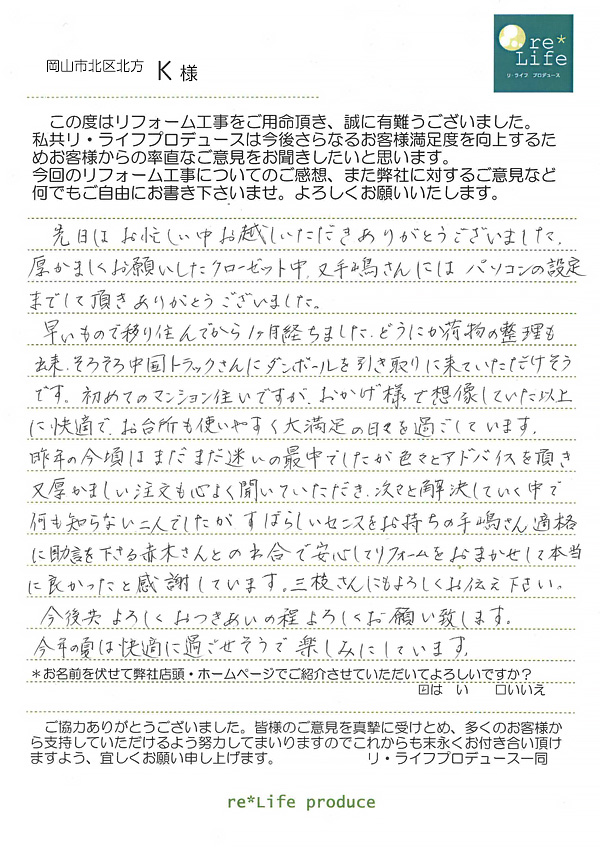 re*
Life
リ・ライフ プロデュース
岡山市北区北方 K 様
この度はリフォーム工事をご用命頂き、誠に有難うございました。
私共リ・ライフプロデュースは今後さらなるお客様満足度を向上するた
めお客様からの率直なご意見をお聞きしたいと思います。
今回のリフォーム工事についてのご感想、また弊社に対するご意見など
何でもご自由にお書き下さいませ。よろしくお願いいたします。
先日は お忙しい中お越しいただきありがとうございました。
厚かましくお願いしたクローゼット中、又手嶋さんには パソコンの設定
までして頂きありがとうございました。
早いもので移り住んでから1ヶ月経ちました。どうにか荷物の整理も
出来、そろそろ中国トラックさんにダンボールを引き取りに来ていただけそう
です。初めてのマンション住いですが、おかげ様で想像していた以上
に快適で、お台所も使いやすく大満足の日々を過ごしています。
昨年の今頃は まだまだ迷いの最中でしたが色々とアドバイスを頂き
又厚かましい注文も心よく聞いていただき、次々と解決していく中で
何も知らない二人でしたが すばらしいセンスをお持ちの手嶋さん 適格
に助言を下さる赤木さんとの 合で安心してリフォームをおまかせして本当
に良かったと感謝しています。三枝さんにもよろしくお伝え下さい。
今後共 よろしく おつきあいの程 よろしくお願い致します。
今年の夏は快適に過ごせそうで 楽しみにしています。
*お名前を伏せて弊社店頭・ホームページでご紹介させていただいてよろしいですか？
☑は い □いいえ
ご協力ありがとうございました。皆様のご意見を真摯に受けとめ、多くのお客様か
ら支持していただけるよう努力してまいりますのでこれからも末永くお付き合い頂け
ますよう、宜しくお願い申し上げます。 リ・ライフプロデュース一同
re*Life produce